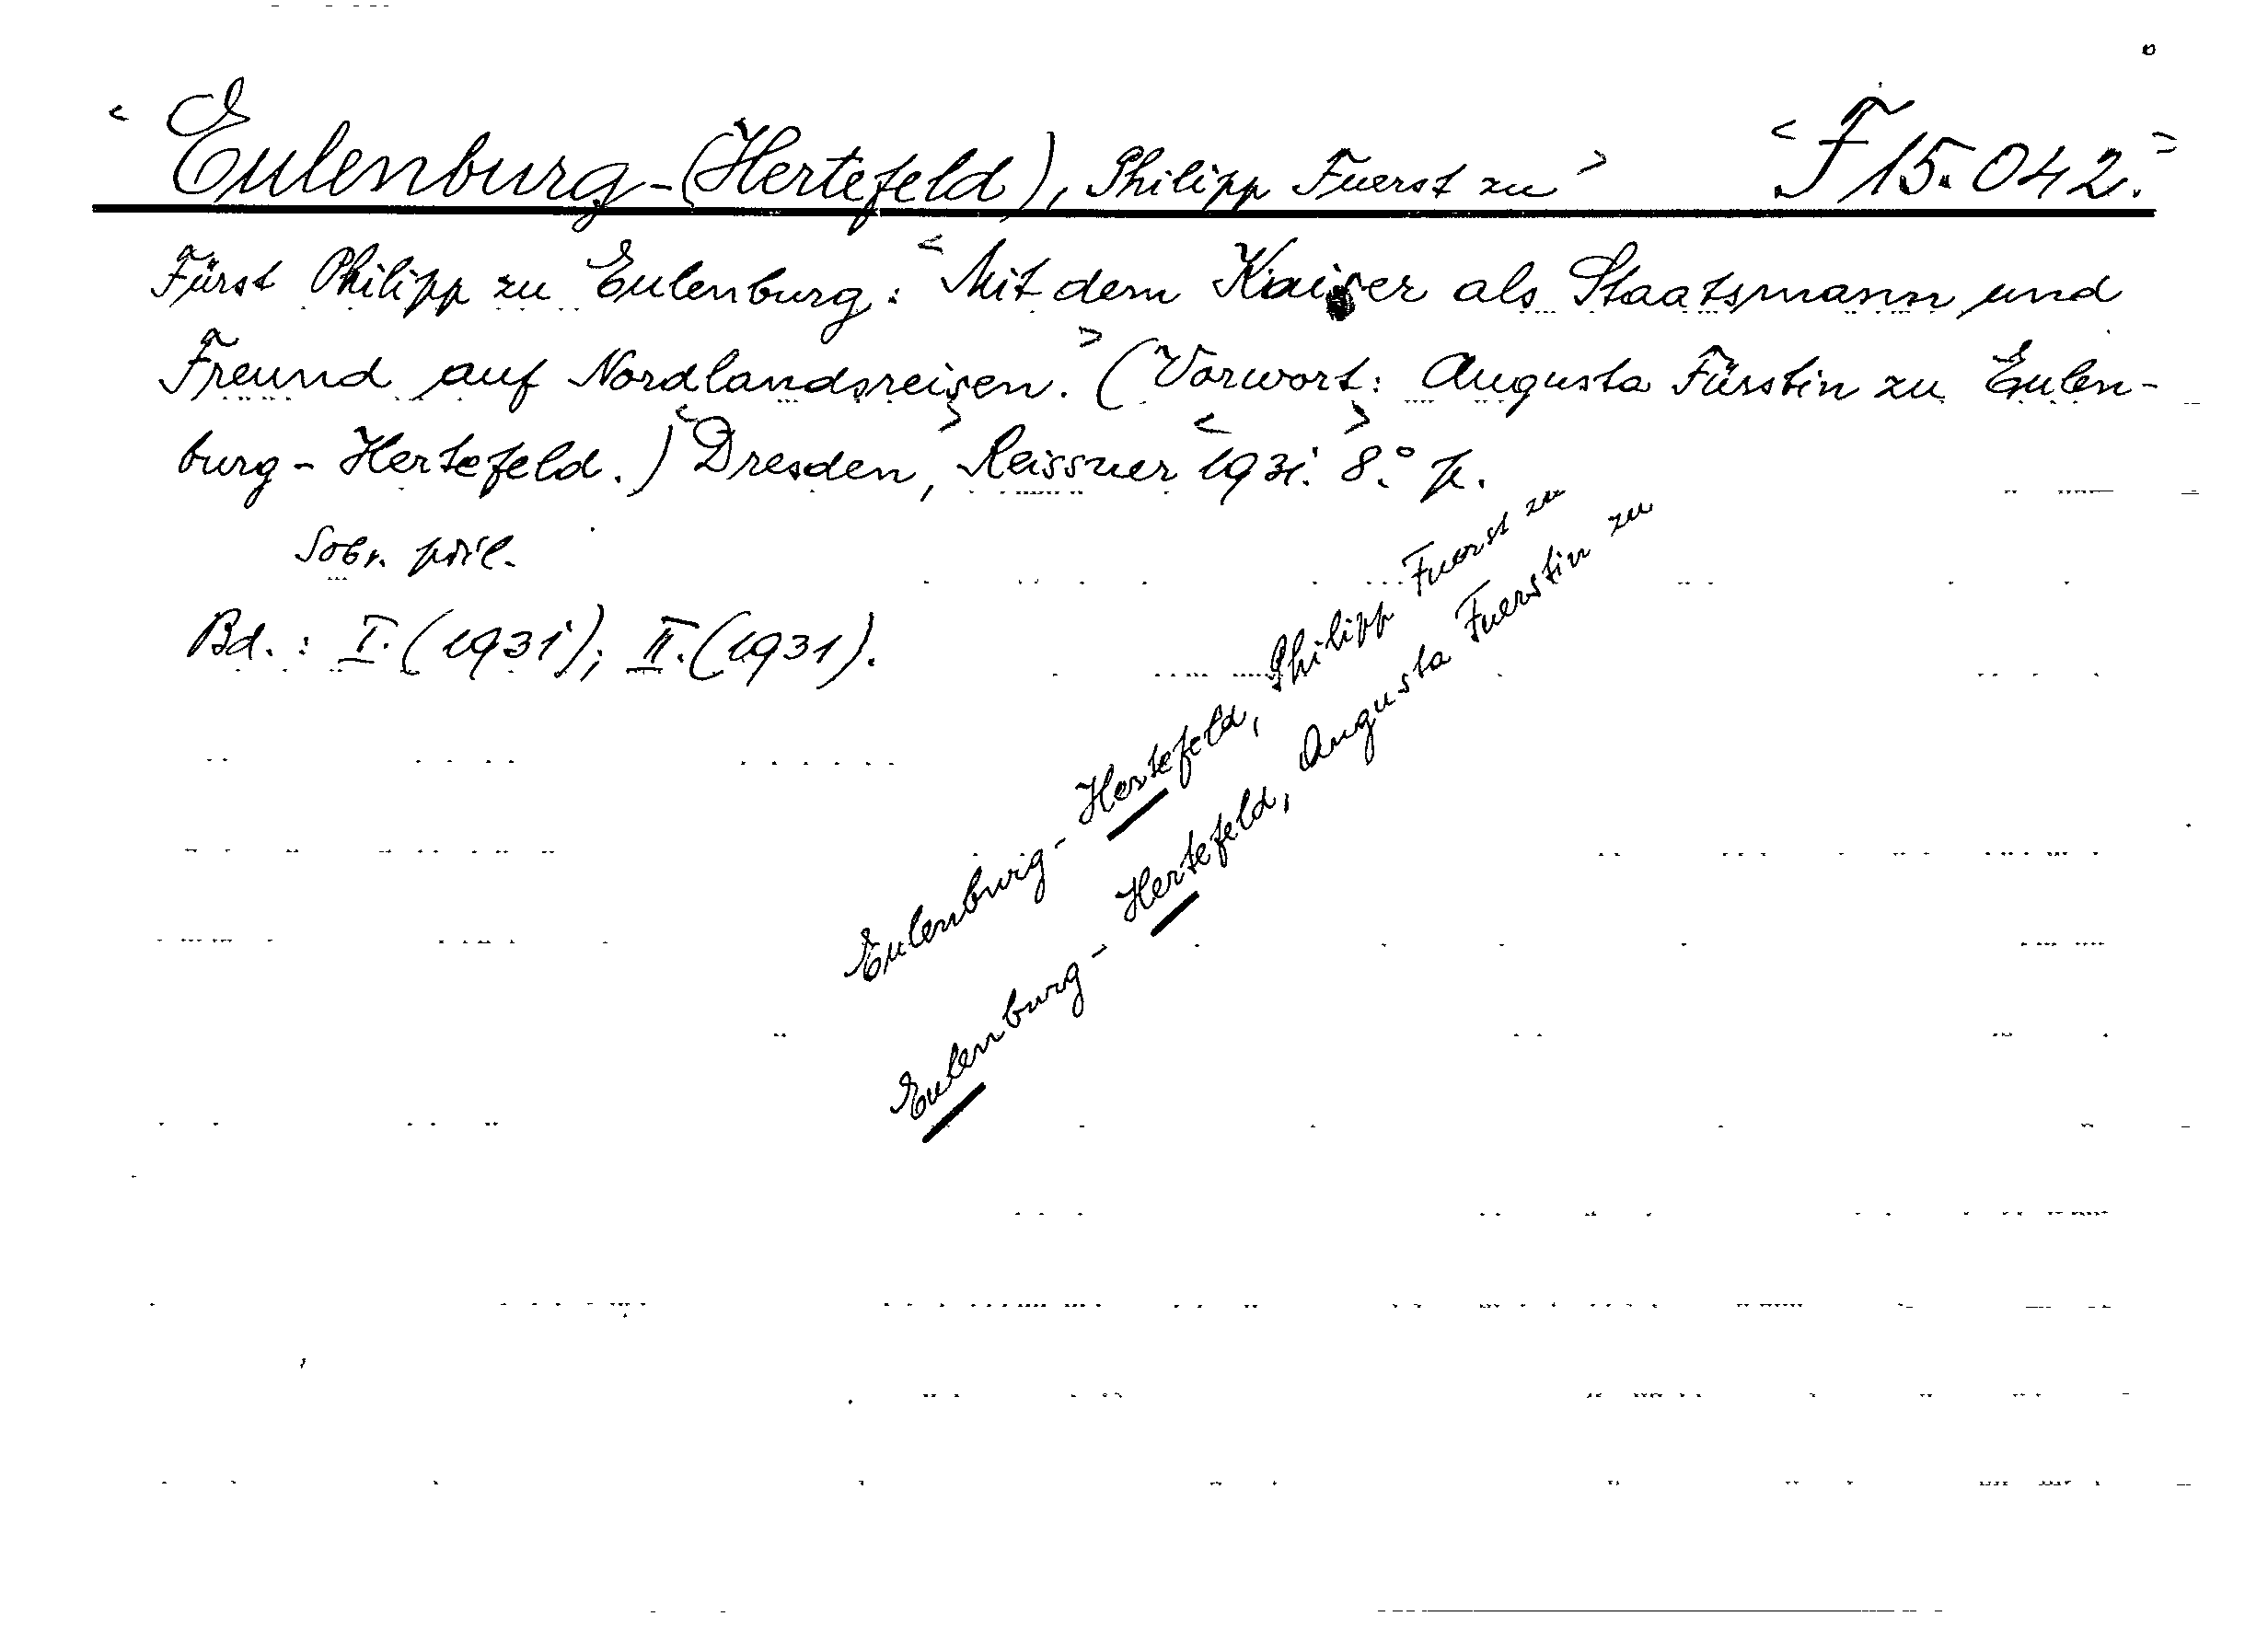 < Eulenburg-(Hertefeld), Philipp Fuerst zu > < F 15.042. >
Fürst Philipp zu Eulenburg: < Mit dem Kaiser als Staatsmann und
Freund auf Nordlandsreisen. > (Vorwort: Augusta Fürstin zu Eulen-
burg-Hertefeld.) < Dresden, > Reissner < 1931. > 8.° p.
Sobr. příl.
Bd.: I. (1931); II. (1931).
Eulenburg-Hertefeld, Philipp Fuerst zu
Eulenburg-Hertefeld, Augusta Fuerstin zu